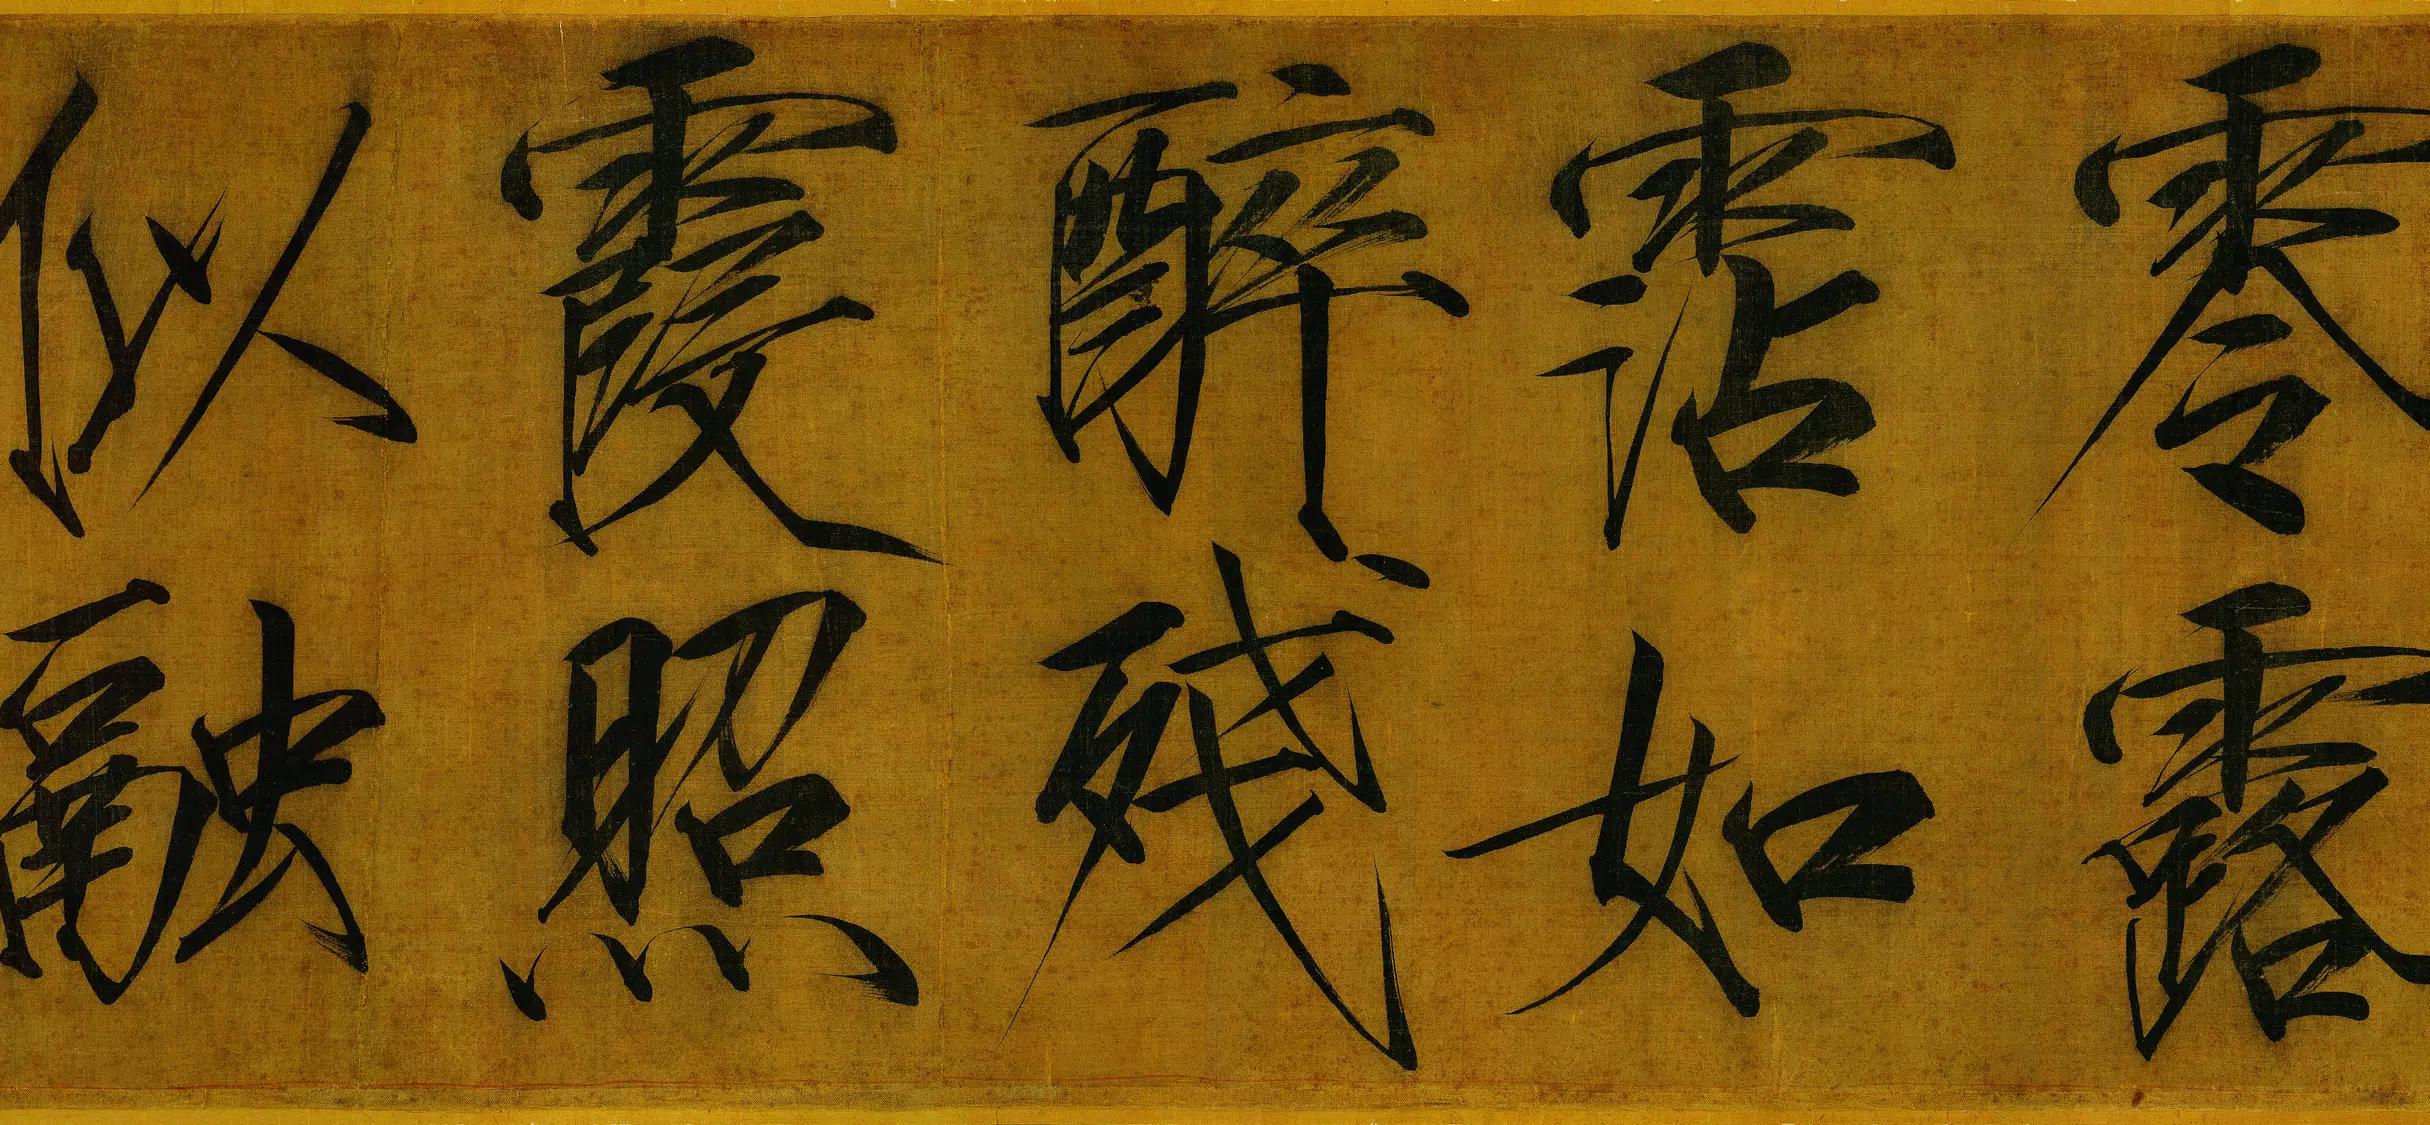 零露
霑如
醉殘
霞照
似融